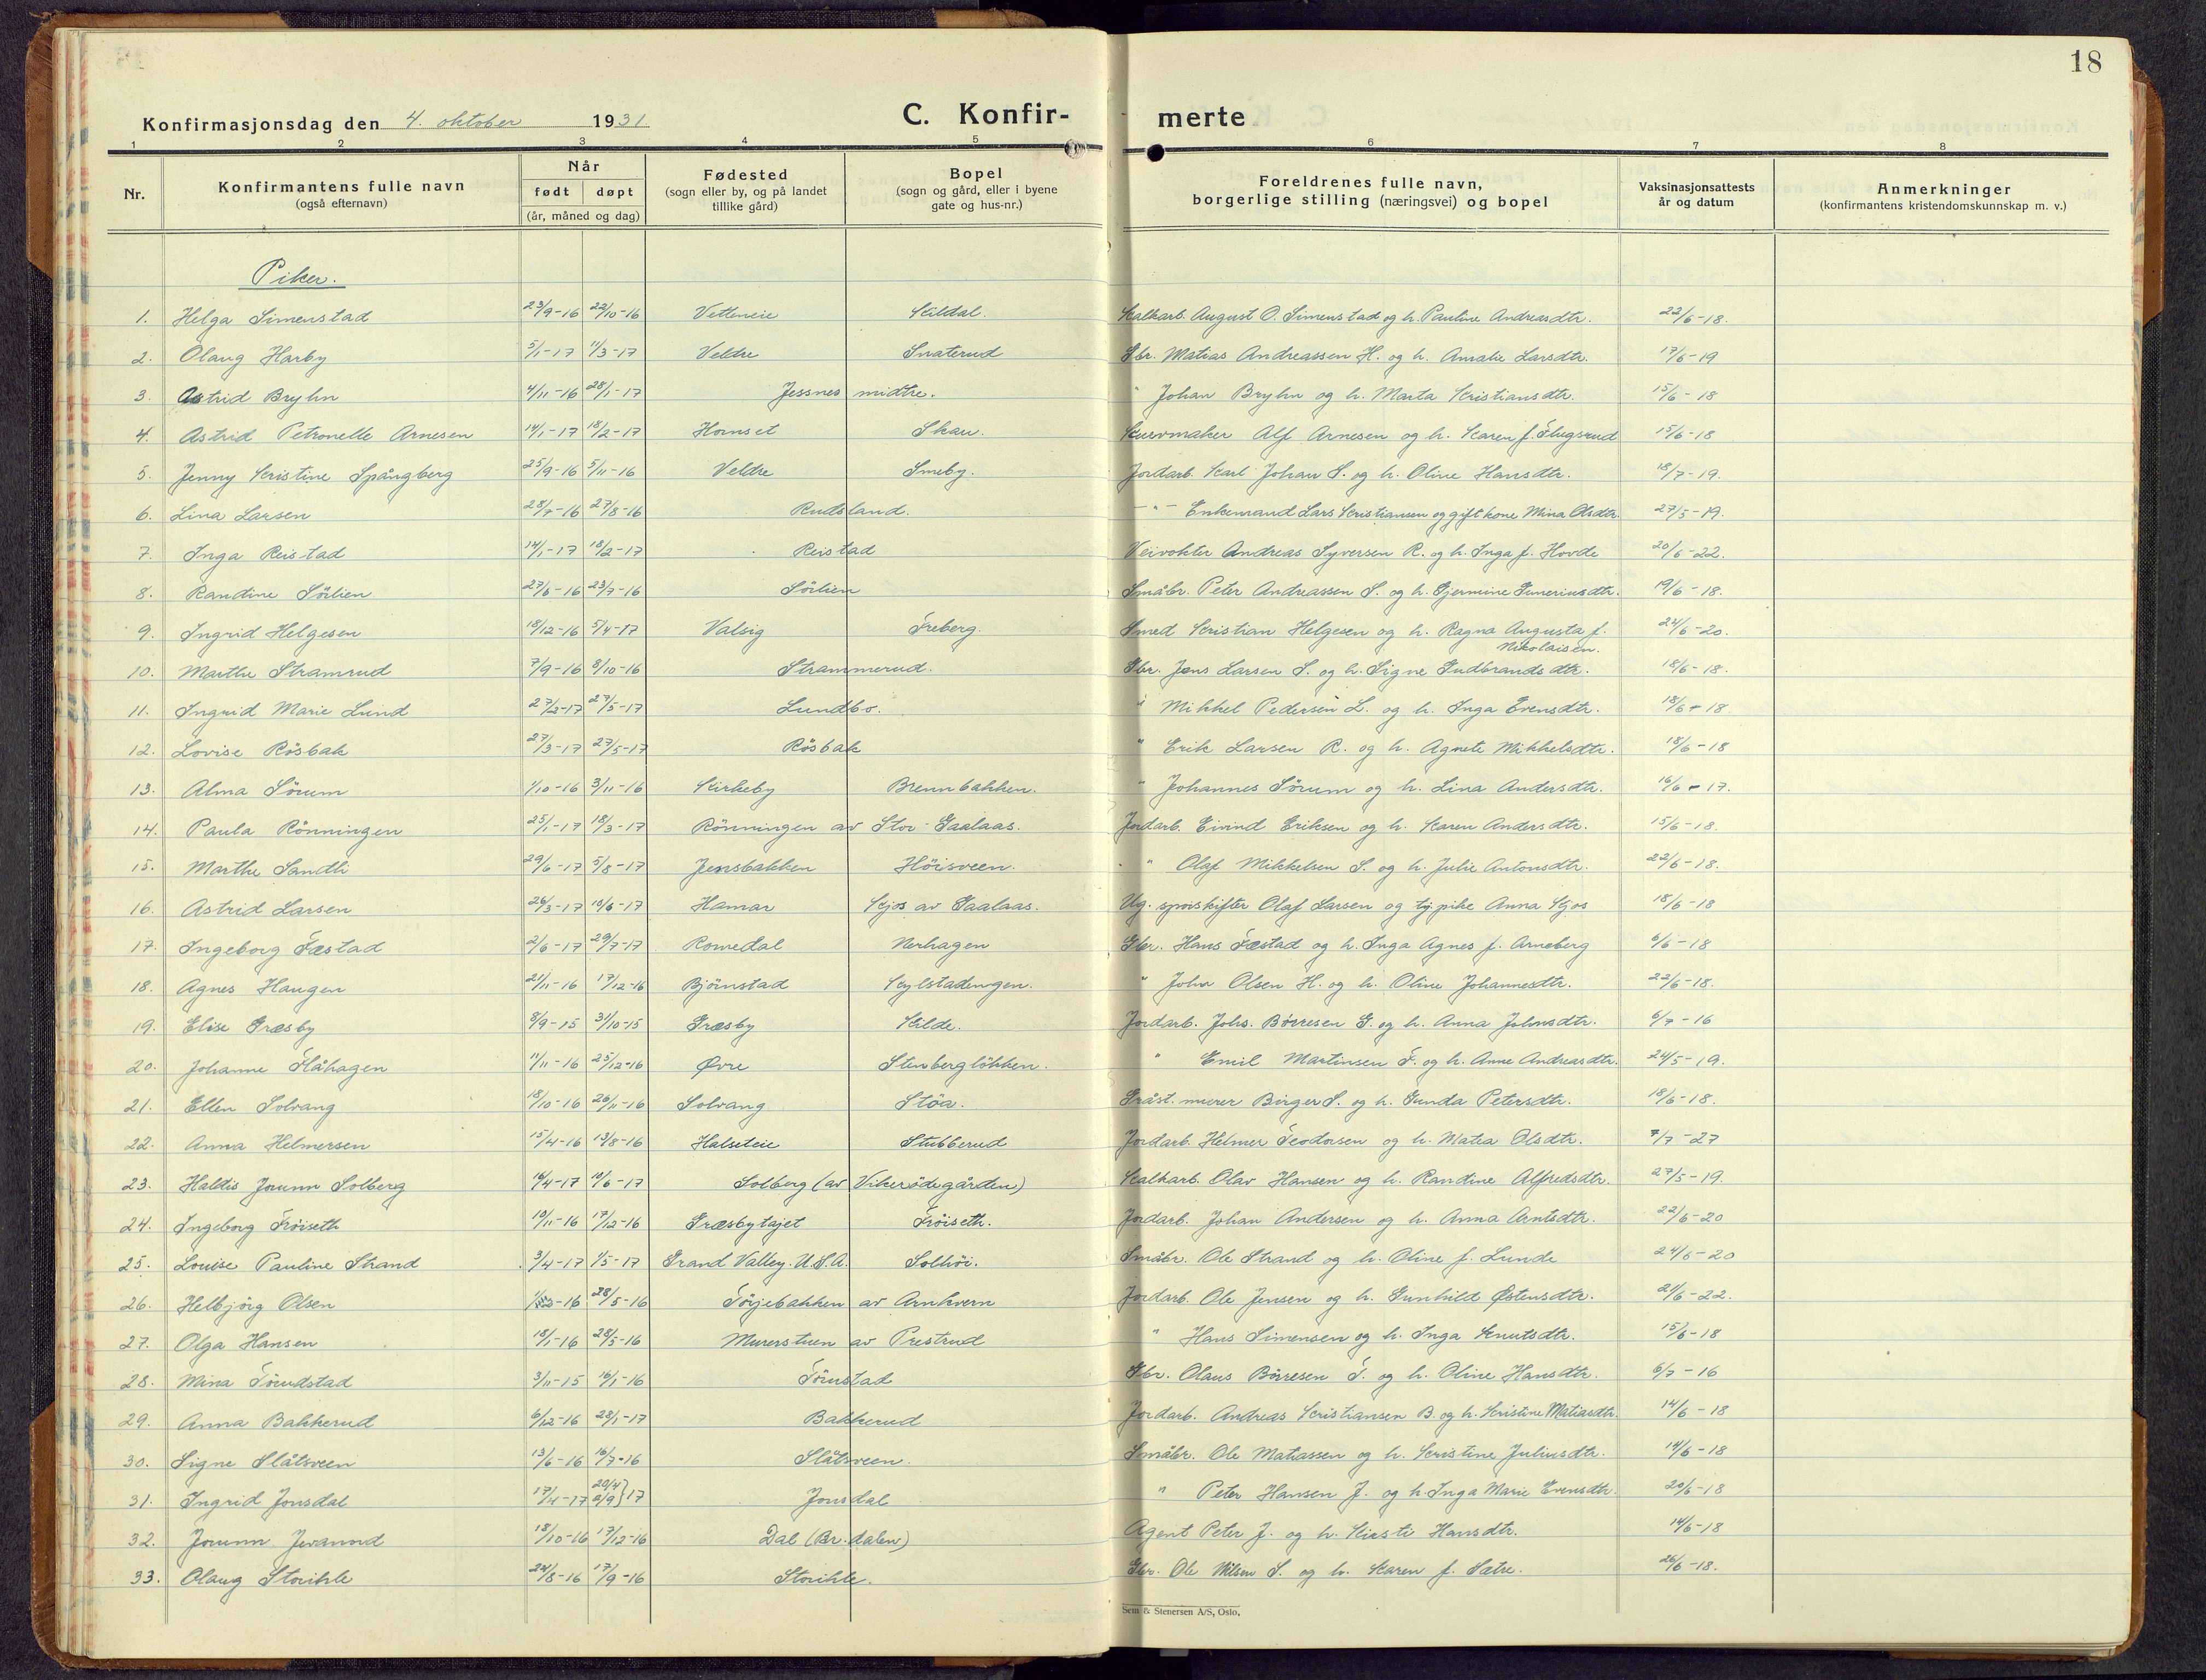 18
Konfirmasjonsdag den 4. oktober 1931 C. Konfir- merte
1 2 3 4 5 6 7 8
Nr. Konfirmantens fulle navn (også efternavn) Når født døpt (år, måned og dag) Fødested (sogn eller by, og på landet tillike gård) Bopel (sogn og gård, eller i byene gate og hus-nr.) Foreldrenes fulle navn, borgerlige stilling (næringsvei) og bopel Vaksinasjonsattests år og datum Anmerkninger (konfirmantens kristendomskunnskap m. v.)
Piker.
1. Helga Simenstad 23/9-16 22/10-16 Vetteneie Kildal. Kalkarb. August O. Simenstad og h. Pauline Andreasdtr. 22/6-18.
2. Olaug Harby 5/1-17 11/3-17 Veldre Snaterud Gbr. Matias Andreassen H. og h. Amalie Larsdtr. 17/6-19
3. Astrid Bryhn 4/11-16 28/1-17 Jessnes midtre. " Johan Bryhn og h. Marta Kristiansdtr. 15/6-18
4. Astrid Petronelle Arnesen 14/1-17 18/2-17 Hornset Skau. Kurvmaker Alf Arnesen og h. Karen f. Flugsrud 15/6-18
5. Jenny Kristine Spångberg 25/9-16 5/11-16 Veldre Smeby. Jordarb. Karl Johan S. og h. Oline Hansdtr. 18/7-19.
6. Lina Larsen 28/7-16 27/8-16 Rudsland. -"- Enkemand Lars Kristiansen og gift kone Mina Olsdtr. 27/5-19.
7. Inga Reistad 14/1-17 18/2-17 Reistad Veivokter Andreas Syversen R. og h. Inga f. Hovde 20/6-22.
8. Randine Sörlien 27/6-16 23/7-16 Sörlien Småbr. Peter Andreassen S. og h. Gjermine Guneriusdtr. 19/6-18.
9. Ingrid Helgesen 18/12-16 5/4-17 Valsig Freberg. Smed Kristian Helgesen og h. Ragna Augusta f. Nikolaisen. 24/6-20.
10. Marthe Stramrud 7/9-16 8/10-16 Strammerud. Gbr. Jens Larsen S. og h. Signe Gudbrandsdtr. 18/6-18.
11. Ingrid Marie Lund 27/2-17 27/5-17 Lundbo. " Mikkel Pedersen L. og h. Inga Evensdtr. 18/6-18
12. Lovise Rösbak 27/3-17 27/5-17 Rösbak " Erik Larsen R. og h. Agnete Mikkelsdtr. 18/6-18
13. Alma Sörum 1/10-16 3/11-16 Kirkeby Brennbakken. " Johannes Sörum og h. Lina Andersdtr. 16/6-17.
14. Paula Rönningen 25/1-17 18/3-17 Rönningen av Stor-Gaalaas. Jordarb. Eivind Eriksen og h. Karen Andersdtr. 15/6-18.
15. Marthe Sandli 29/6-17 5/8-17 Jensbakken Höisveen. " Olaf Mikkelsen S. og h. Julie Antonsdtr. 22/6-18.
16. Astrid Larsen 26/3-17 10/6-17 Hamar Kjos av Gaalaas. Ug. sporskifter Olaf Larsen og tj.pike Anna Kjos 18/6-18
17. Ingeborg Fæstad 2/6-17 29/7-17 Romedal Nerhagen Gbr. Hans Fæstad og h. Inga Agnes f. Arneberg 6/6-18
18. Agnes Haugen 21/11-16 17/12-16 Björnstad Kylstadengen. " John Olsen H. og h. Oline Johannesdtr. 22/6-18.
19. Elise Græsby 8/9-15 31/10-15 Græsby Kilde. Jordarb. Johs. Börresen G. og h. Anna Johnsdtr. 6/7-16
20. Johanne Flåhagen 11/11-16 25/12-16 Øvre Stenberglökken. " Emil Martinsen F. og h. Anne Andreasdtr. 24/5-19.
21. Ellen Solvang 18/10-16 26/11-16 Solvang Stöa. Gråst.murer Birger S. og h. Gunda Petersdtr. 18/6-18.
22. Anna Helmersen 15/4-16 13/8-16 Halseteie Stubberud Jordarb. Helmer Teodorsen og h. Matea Olsdtr. 7/7-27
23. Haldis Jorunn Solberg 14/4-17 10/6-17 Solberg (av Vikerödegården) Kalkarb. Olav Hansen og h. Randine Alfredsdtr. 27/5-19.
24. Ingeborg Fröiseth 10/11-16 17/12-16 Græsbytajet Fröiseth. Jordarb. Johan Andersen og h. Anna Arntsdtr. 22/6-20
25. Louise Pauline Strand 3/4-17 1/5-17 Grand Valley. U.S.A. Solhöi. Småbr. Ole Strand og h. Oline f. Lunde 24/6-20
26. Helbjörg Olsen 28/5-16 Törjebakken av Arnkvern Jordarb. Ole Jensen og h. Gunhild Østensdtr. 21/6-22.
27. Olga Hansen 18/1-16 28/5-16 Murerstuen av Prestrud " Hans Simensen og h. Inga Knutsdtr. 15/6-18
28. Mina Törudstad 3/11-15 16/1-16 Törrustad Gbr. Olaus Börresen T. og h. Oline Hansdtr. 6/7-16
29. Anna Bakkerud 6/12-16 28/1-17 Bakkerud Jordarb. Andreas Kristiansen B. og h. Kristine Matiasdtr. 14/6-18
30. Signe Slåtsveen 13/6-16 16/7-16 Slåtsveen. Småbr. Ole Matiassen og h. Kristine Juliusdtr. 14/6-18
31. Ingrid Jonsdal 17/4-17 20/4 2/9 } 17 Jonsdal " Peter Hansen J. og h. Inga Marie Evensdtr. 20/6-18
32. Jorunn Jevanord 18/10-16 17/12-16 Dal (Br.dalen) Agent Peter J. og h. Kirsti Hansdtr. 14/6-18
33. Olaug Storihle 24/8-16 17/9-16 Storihle. Gbr. Ole Nilsen S. og h. Karen f. Sætre. 26/6-18.
Sem & Stenersen A/S, Oslo.